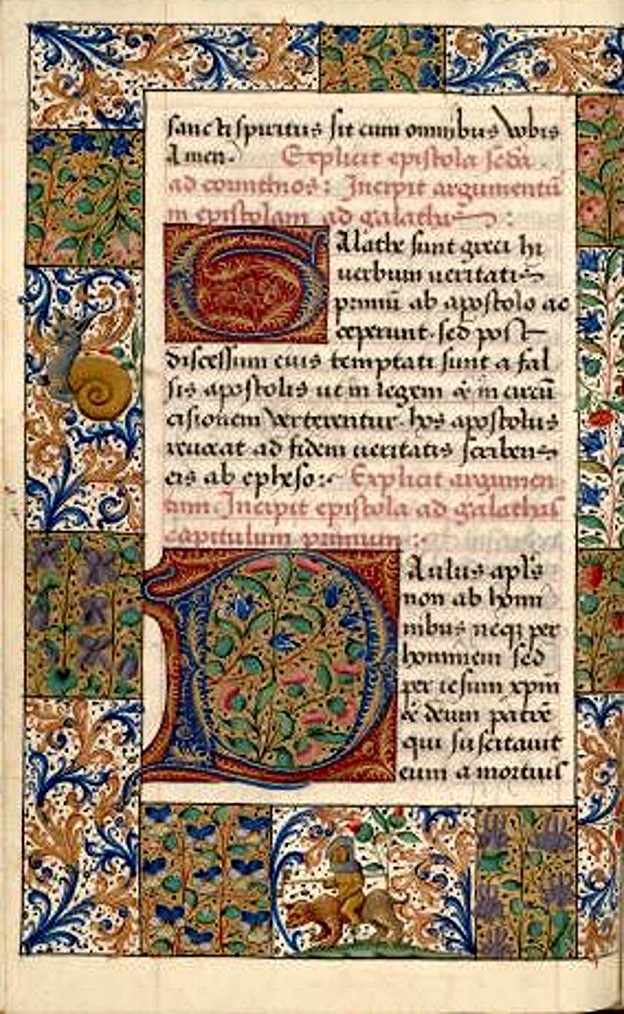 sancti spiritus sit cum omnibus vobis
Amen. Explicit epistola secda
ad corinthios: Incipit argumentū
in epistolam ad galathas:
Galathe sunt greci hi
uerbum ueritatis
primū ab apostolo ac
ceperunt. sed post
discessum eius temptati sunt a fal
sis apostolis ut in legem & in circū
cisionem verterentur. hos apostolus
reuocat ad fidem ueritatis scribens
eis ab epheso: Explicit argumen
tum. Incipit epistola ad galathas
capitulum primum:
Paulus apl's
non ab homi
nibus neqz per
hominem sed
per iesum xpm
& deum patrē
qui suscitauit
eum a mortuis